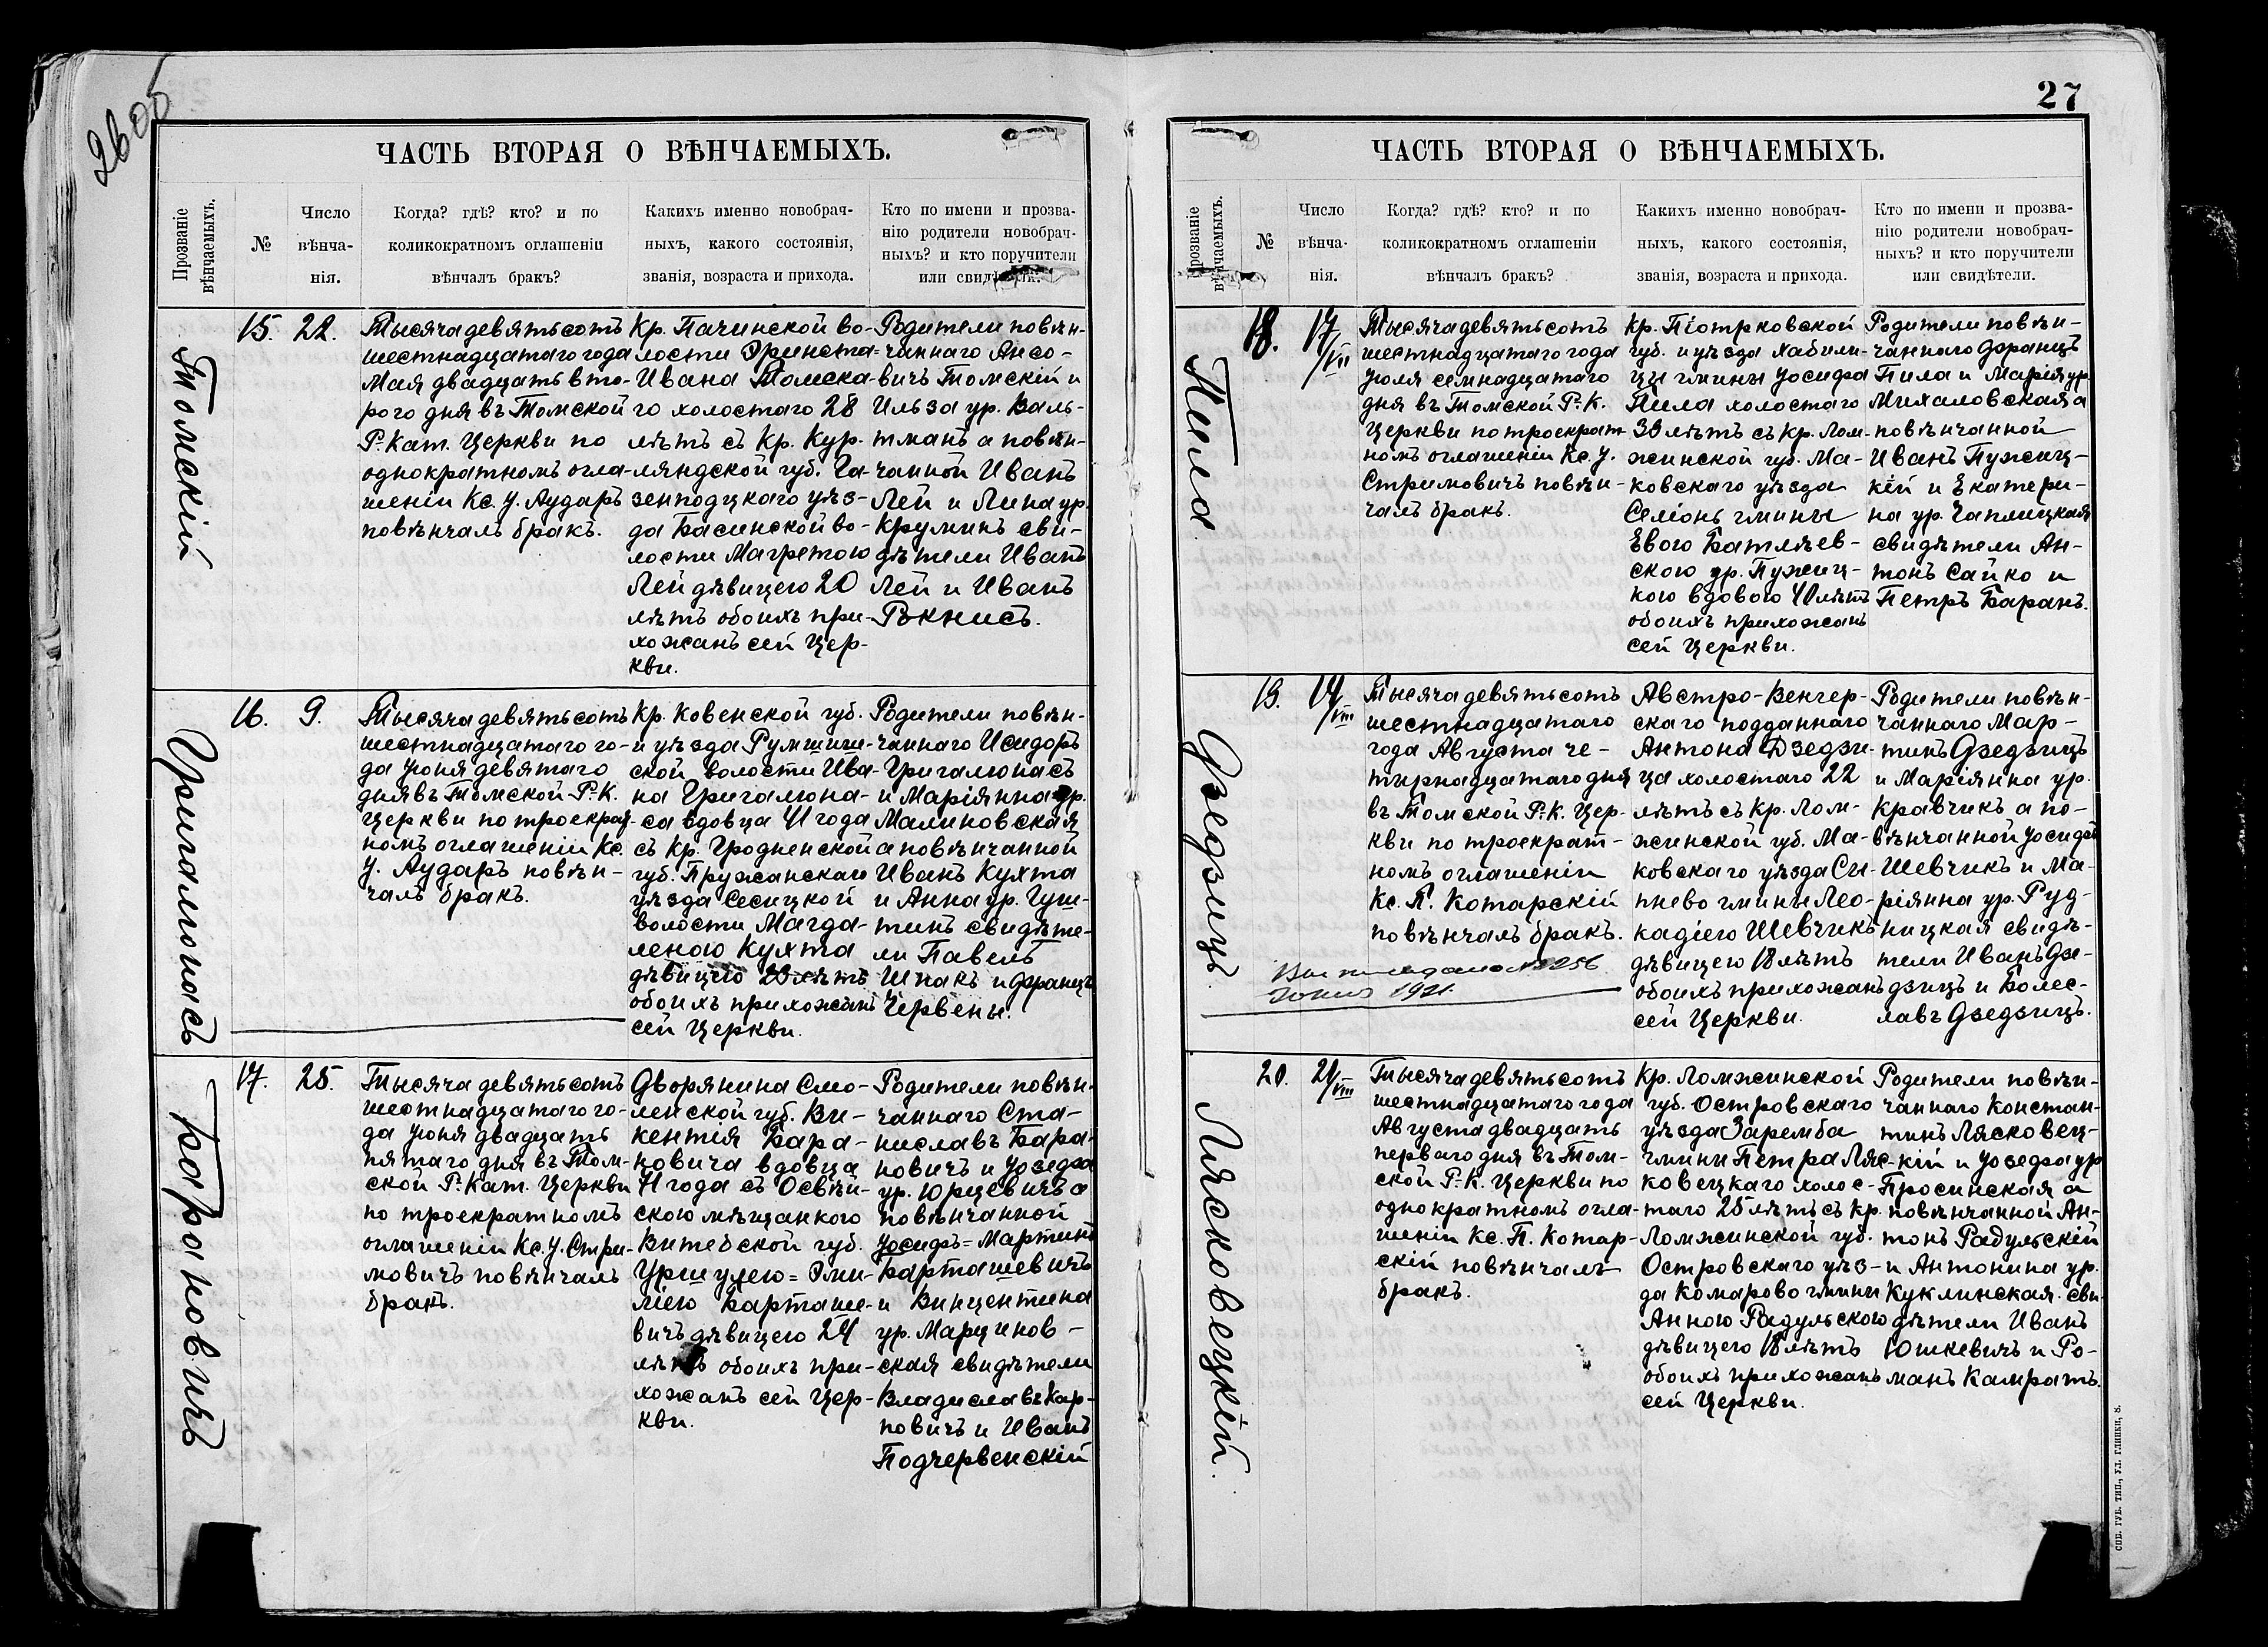 2605
ЧАСТЬ ВТОРАЯ О ВѢНЧАЕМЫХЪ.
Прозваніе
вѣнчаемыхъ.
№
Число
вѣнча-
нія.
Когда? гдѣ? кто? и по
коликократномъ оглашеніи
вѣнчалъ бракъ?
Какихъ именно новобрач-
ныхъ, какого состоянія,
званія, возраста и прихода.
Кто по имени и прозва-
нію родители новобрач-
ныхъ? и кто поручители
или свидѣтели.
Томскій
15.
22.
Тысяча девятьсотъ
шестнадцатаго года
Мая двадцать вто-
рого дня въ Томской
Р.-Кат. Церкви по
однократномъ огла-
шеніи Кс. У. Аударъ
повѣнчалъ бракъ.
Кр. Пачинской во-
лости Эрнеста=
Ивана Томска-
го холостаго 28
лѣтъ съ Кр. Кур-
ляндской губ. Га-
зенподцкаго уѣз-
да Басинской во-
лости Магретою
Лей дѣвицею 20
лѣтъ обоихъ при-
хожанъ сей Цер-
кви.
Родители повѣн-
чаннаго Ансо-
вичъ Томскій и
Ильза ур. Валь-
тманъ а повѣн-
чанной Иванъ
Лей и Лина ур.
Круминъ сви-
дѣтели Иванъ
Лей и Иванъ
Рокнисъ.
Григалюнасъ
16.
9.
Тысяча девятьсотъ
шестнадцатаго го-
да Іюня девятаго
дня въ Томской Р.-К.
Церкви по троекрат-
номъ оглашеніи Кс.
У. Аударъ повѣн-
чалъ бракъ.
Кр. Ковенской губ.
и уѣзда Румшиш-
ской волости Ива-
на Григалюна-
са вдовца 41 года
съ Кр. Гродненской
губ. Пружанскаго
уѣзда Сесицкой
волости Магда-
леною Кухта
дѣвицею 20 лѣтъ
обоихъ прихожанъ
сей Церкви.
Родители повѣн-
чаннаго Исидоръ
Григалюнасъ
и Маріянна ур.
Малиновская
а повѣнчанной
Иванъ Кухта
и Анна ур. Гуш-
тинъ свидѣте-
ли Павелъ
Шпакъ и Францъ
Червены.
Барановичъ
17.
25.
Тысяча девятьсотъ
шестнадцатаго го-
да Іюня двадцать
пятаго дня въ Том-
ской Р.-Кат. Церкви
по троекратномъ
оглашеніи Кс. У. Стри-
мовичъ повѣнчалъ
бракъ.
Дворянина Смо-
ленской губ. Ви-
кентія Бара-
новича вдовца
41 года съ Освѣй-
скою мѣщанкою
Витебской губ.
Уршулею=Эми-
ліею Барташе-
вичъ дѣвицею 24
лѣтъ обоихъ при-
хожанъ сей Цер-
кви.
Родители повѣн-
чаннаго Ста-
ниславъ Бара-
новичъ и Іозефа
ур. Юрцевичъ а
повѣнчанной
Іосифъ=Мартинъ
Барташевичъ
и Винцентина
ур. Марцинов-
ская свидѣтели
Владиславъ Кар-
повичъ и Иванъ
Подчервенскій
27
ЧАСТЬ ВТОРАЯ О ВѢНЧАЕМЫХЪ.
Прозваніе
вѣнчаемыхъ.
№
Число
вѣнча-
нія.
Когда? гдѣ? кто? и по
коликократномъ оглашеніи
вѣнчалъ бракъ?
Какихъ именно новобрач-
ныхъ, какого состоянія,
званія, возраста и прихода.
Кто по имени и прозва-
нію родители новобрач-
ныхъ? и кто поручители
или свидѣтели.
Пила
18.
17/VII
Тысяча девятьсотъ
шестнадцатаго года
Іюля семнадцатаго
дня въ Томской Р.-К.
Церкви по троекрат-
номъ оглашеніи Кс. У.
Стримовичъ повѣн-
чалъ бракъ.
Кр. Піотрковской
губ. и уѣзда Хабили-
цы гмины Іосифа
Пила холостаго
33 лѣтъ съ Кр. Лом-
жинской губ. Ма-
ковскаго уѣзда
Селіонь гмины
Евою Батлѣев-
скою ур. Пужиц-
кою вдовою 40 лѣтъ
обоихъ прихожанъ
сей Церкви.
Родители повѣн-
чаннаго Францъ
Пила и Марія ур.
Михаловская а
повѣнчанной
Иванъ Пужиц-
кій и Екатери-
на ур. Чаплицкая
свидѣтели Ан-
тонъ Сайко и
Петръ Баранъ.
Дзедзицъ
19.
14/VIII
Тысяча девятьсотъ
шестнадцатаго
года Августа че-
тырнадцатаго дня
въ Томской Р.-К. Цер-
кви по троекрат-
номъ оглашеніи
Кс. П. Котарскій
повѣнчалъ бракъ.
256
1921
Австро-Венгер-
скаго подданнаго
Антона Дзедзи-
ца холостаго 22
лѣтъ съ Кр. Лом-
жинской губ. Ма-
ковскаго уѣзда Сы-
пнево гмины Лео-
кадіею Шевчикъ
дѣвицею 18 лѣтъ
обоихъ прихожанъ
сей Церкви.
Родители повѣн-
чаннаго Мар-
тинъ Дзедзицъ
и Маріянна ур.
Кравчикъ а по-
вѣнчанной Іосифъ
Шевчикъ и Ма-
ріянна ур. Руд-
ницкая свидѣ-
тели Иванъ Дзе-
дзицъ и Болес-
лавъ Дзедзицъ.
Лясковецкій.
20.
21/VIII
Тысяча девятьсотъ
шестнадцатаго года
Августа двадцать
перваго дня въ Том-
ской Р.-К. Церкви по
однократномъ огла-
шеніи Кс. П. Котар-
скій повѣнчалъ
бракъ.
Кр. Ломжинской
губ. Островскаго
уѣзда Заремба
гмины Петра Ляс-
ковецкаго холос-
таго 25 лѣтъ съ Кр.
Ломжинской губ.
Островскаго уѣз-
да Комарово гмины
Анною Радульскою
дѣвицею 18 лѣтъ
обоихъ прихожанъ
сей Церкви.
Родители повѣн-
чаннаго Констан-
тинъ Лясковец-
кій и Іозефа ур
Просинская а
повѣнчанной Ан-
тонъ Радульскій
и Антонина ур.
Куклинская. сви-
дѣтели Иванъ
Юшкевичъ и Ро-
манъ Камратъ.
СПБ. ГУБ. ТИП., УЛ. ГЛИНКИ, 8.